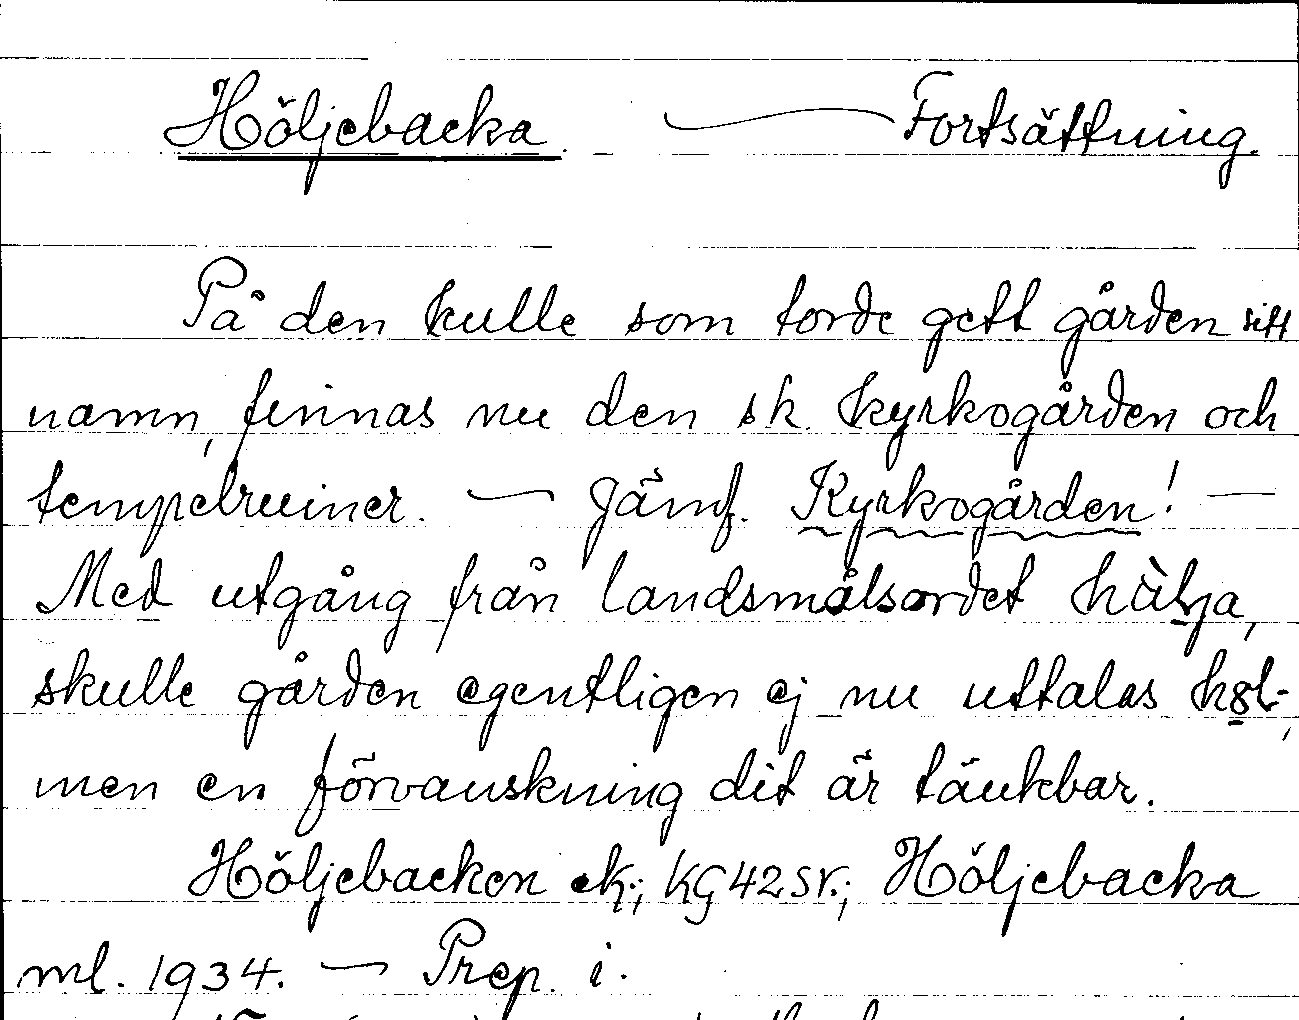 Höljebacka. — Fortsättning.
På den kulle som torde gett gården sitt
namn, finnas nu den sk. kyrkogården och
tempelruiner. — Jämf. Kyrkogården! —
Med utgång från landsmålsordet hàlja,
skulle gården egentligen ej nu uttalas
men en förvanskning dit är tänkbar.
Höljebacken ek.; KG 42 sv.; Höljebacka
ml. 1934. — Prep. i.